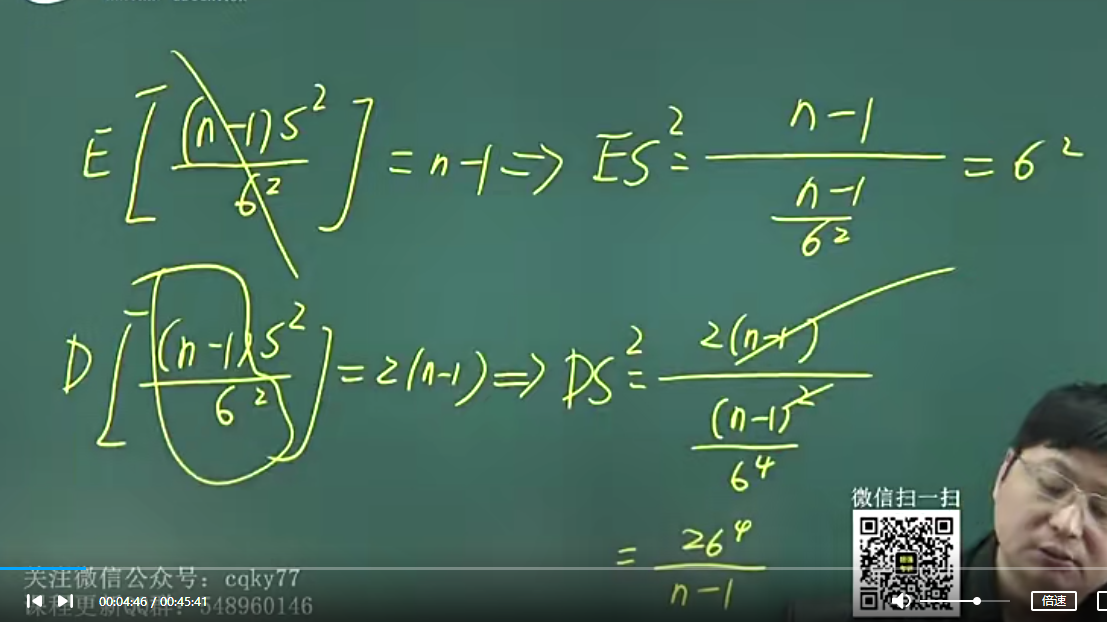 E[(n-1)S²/6²] = n-1 => ES² = (n-1)/((n-1)/6²) = 6²
D[(n-1)S²/6²] = 2(n-1) => DS² = 2(n-1)/((n-1)²/6⁴)
= 26⁴/(n-1)
微信扫一扫
关注微信公众号：cqky77
课程更新QQ群：548960146
00:04:46 / 00:45:41
倍速